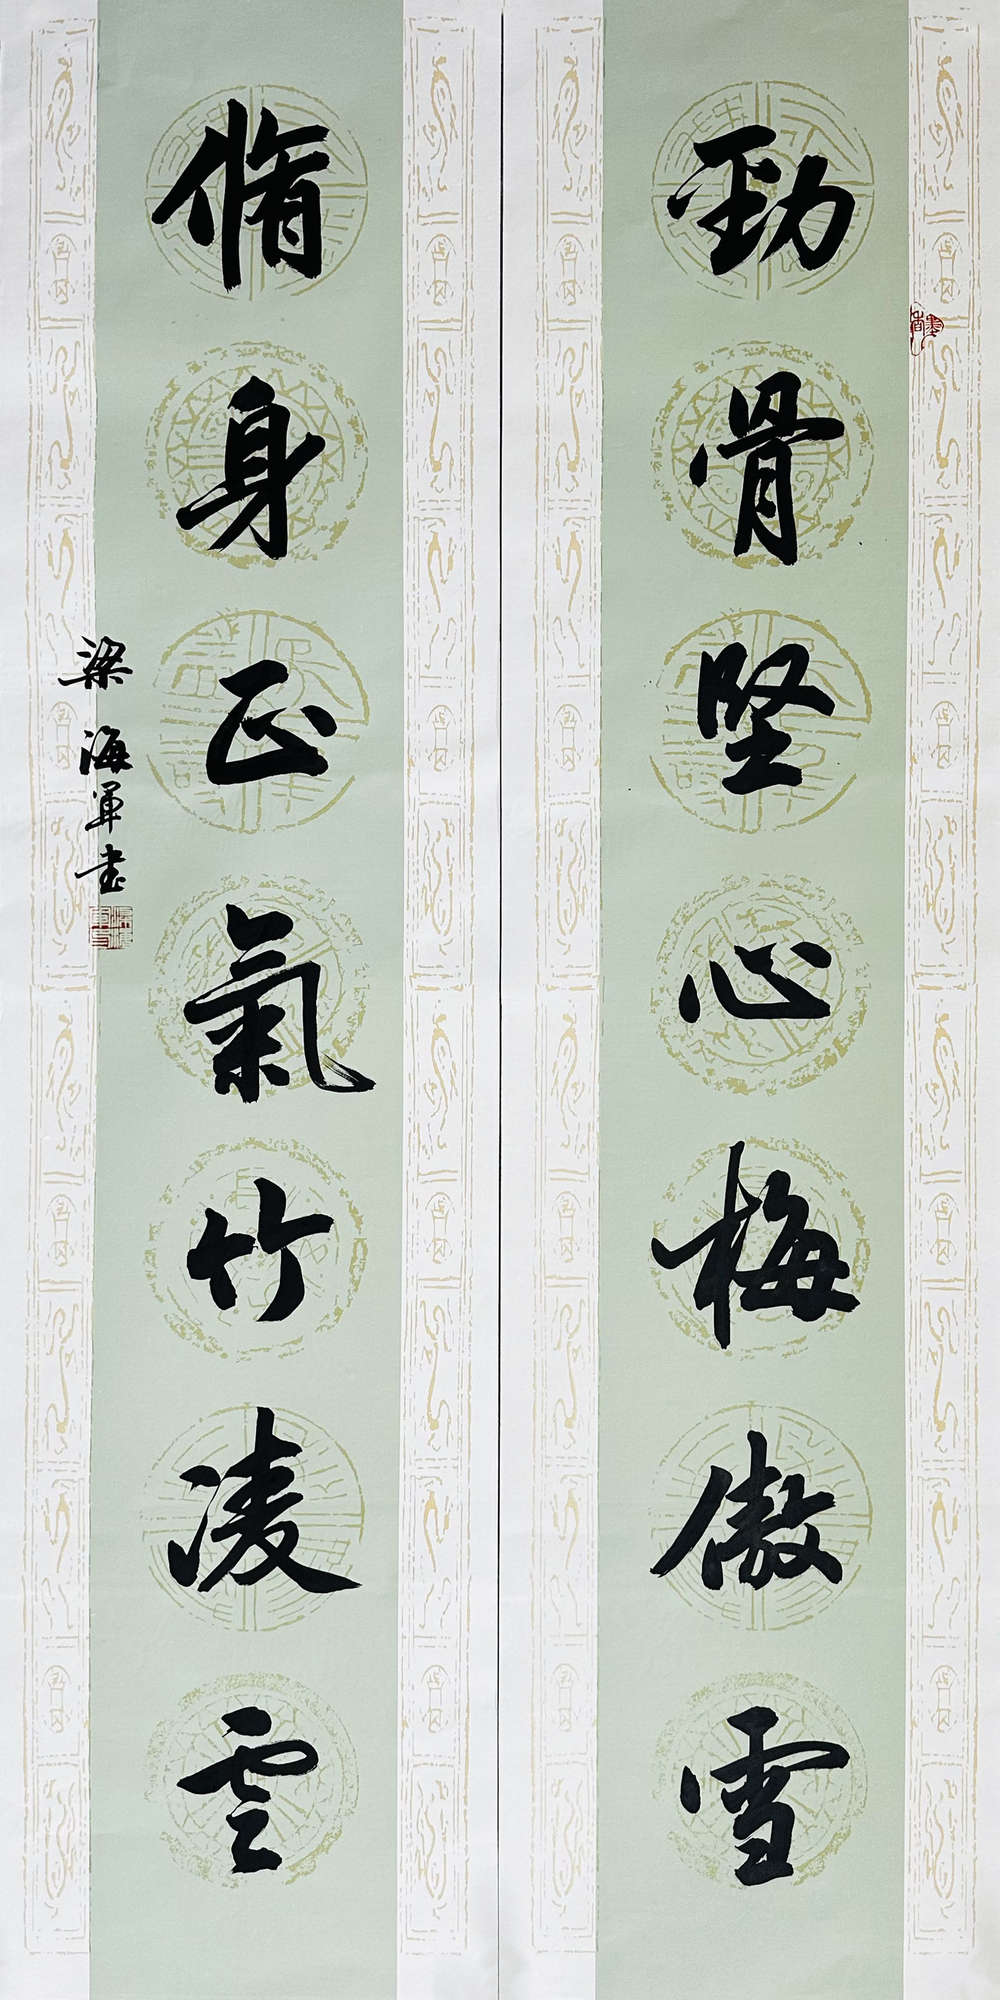 勁骨堅心梅傲雪
脩身正氣竹凌雲
梁海軍書